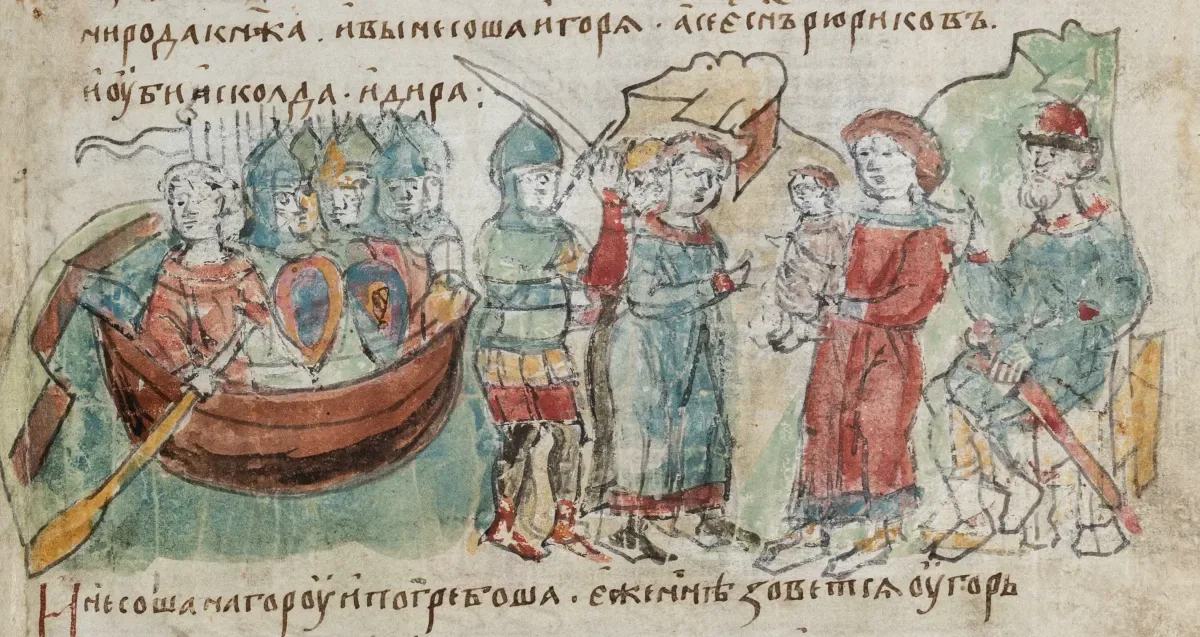 ни рода кнѧжа · и вынесоша игорѧ · а се есть сн҃ъ рюриковъ.
и оубиша асколда · и дира:
И несоша на гороу и погребоша · еже нынѣ зоветсѧ оугорь